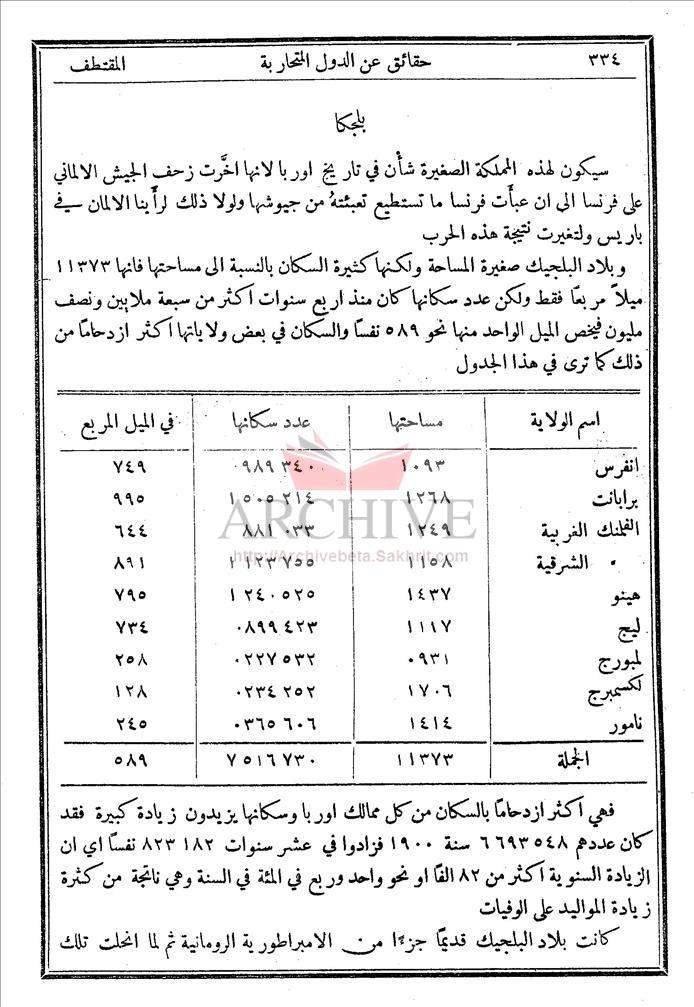 ٣٣٤ حقائق عن الدول المتحاربة المقتطف
بلجكا
سيكون لهذه المملكة الصغيرة شأن في تاريخ اوربا لانها اخَّرت زحف الجيش الالماني
على فرنسا الى ان عبأَت فرنسا ما تستطيع تعبئتهُ من جيوشها ولولا ذلك لرأينا الالمان في
باريس ولتغيرت نتيجة هذه الحرب
وبلاد البلجيك صغيرة المساحة ولكنها كثيرة السكان بالنسبة الى مساحتها فانها ١١٣٧٣
ميلاً مربعًا فقط ولكن عدد سكانها كان منذ اربع سنوات اكثر من سبعة ملايين ونصف
مليون فيخص الميل الواحد منها نحو ٥٨٩ نفسًا والسكان في بعض ولاياتها اكثر ازدحامًا من
ذلك كما ترى في هذا الجدول
اسم الولاية مساحتها عدد سكانها في الميل المربع
انفرس ١٠٩٣ ٠٩٨٩ ٣٤٠ ٧٤٩
برابانت ١٢٦٨ ١٥٠٥ ٢١٤ ٩٩٥
الفلمنك الغربية ١٢٤٩ ٨٨١ ٠٣٣ ٦٤٤
" الشرقية ١١٥٨ ١١٢٣ ٧٥٥ ٨٩١
هينو ١٤٣٧ ١٢٤٠ ٥٢٥ ٧٩٥
ليج ١١١٧ ٠٨٩٩ ٤٢٣ ٧٣٤
لمبورج ٠٩٣١ ٠٢٢٧ ٥٣٢ ٢٥٨
لكسمبرج ١٧٠٦ ٠٢٣٤ ٢٥٢ ١٢٨
نامور ١٤١٤ ٠٣٦٥ ٦٠٦ ٢٤٥
الجملة ١١٣٧٣ ٧٥١٦ ٧٣٠ ٥٨٩
ARCHIVE
http://Archivebeta.Sakhrit.com
فهي اكثر ازدحامًا بالسكان من كل ممالك اوربا وسكانها يزيدون زيادة كبيرة فقد
كان عددهم ٦٦٩٣٥٤٨ سنة ١٩٠٠ فزادوا في عشر سنوات ٨٢٣١٨٢ نفسًا اي ان
الزيادة السنوية اكثر من ٨٢ الفًا او نحو واحد وربع في المئة في السنة وهي ناتجة من كثرة
زيادة المواليد على الوفيات
كانت بلاد البلجيك قديمًا جزءًا من الامبراطورية الرومانية ثم لما انحلت تلك